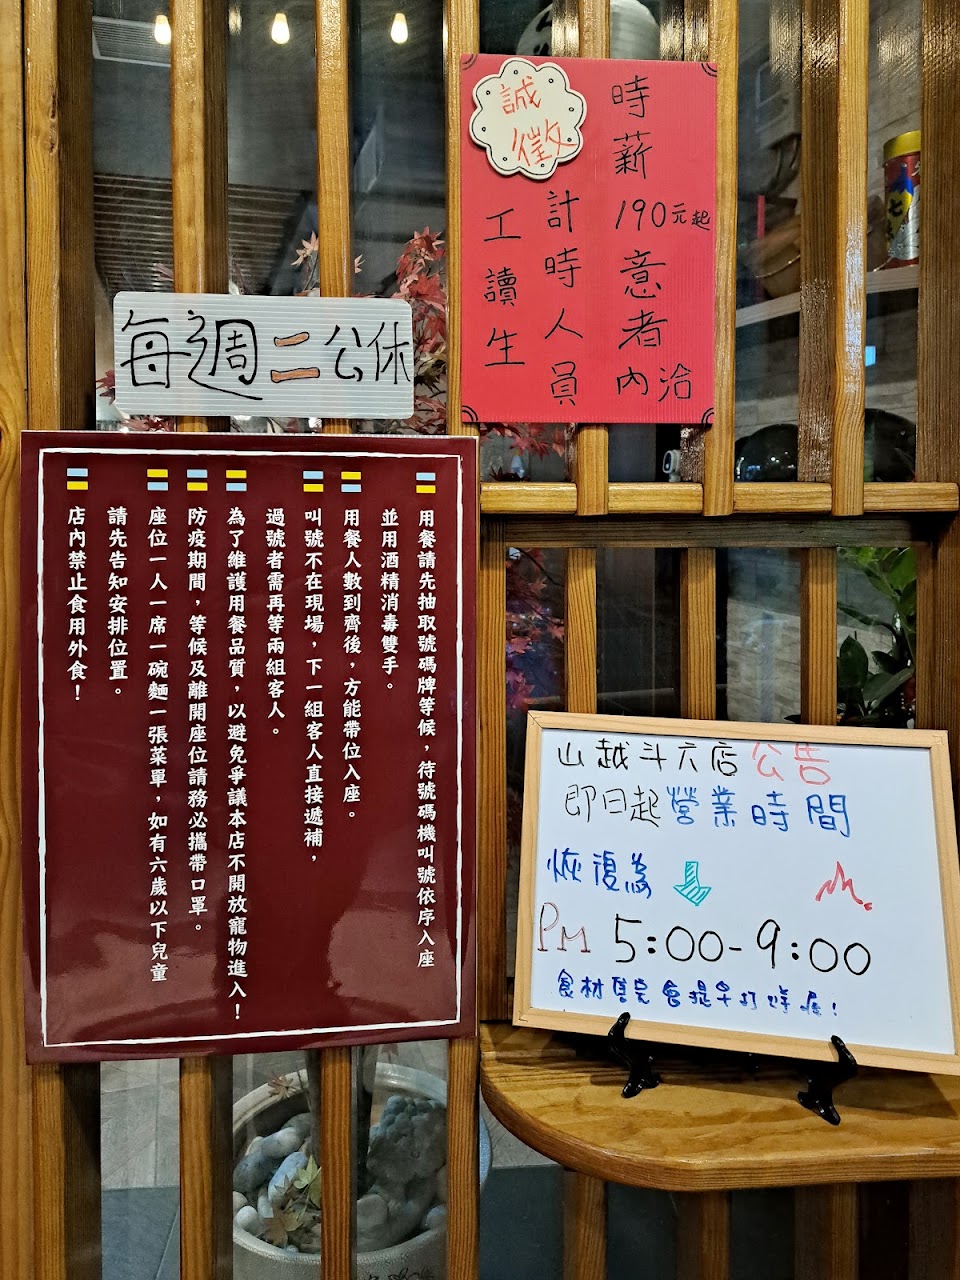 誠徵
時薪190元起意者內洽
計時人員
工讀生
每週二公休
用餐請先抽取號碼牌等候，待號碼機叫號依序入座
並用酒精消毒雙手。
用餐人數到齊後，方能帶位入座。
叫號不在現場，下一組客人直接遞補，
過號者需再等兩組客人。
為了維護用餐品質，以避免爭議本店不開放寵物進入！
防疫期間，等候及離開座位請務必攜帶口罩。
座位一人一席一碗麵一張菜單，如有六歲以下兒童
請先告知安排位置。
店內禁止食用外食！
山越斗六店公告
即日起營業時間
恢復為
PM 5:00-9:00
食材售完會提早打烊喔！
七